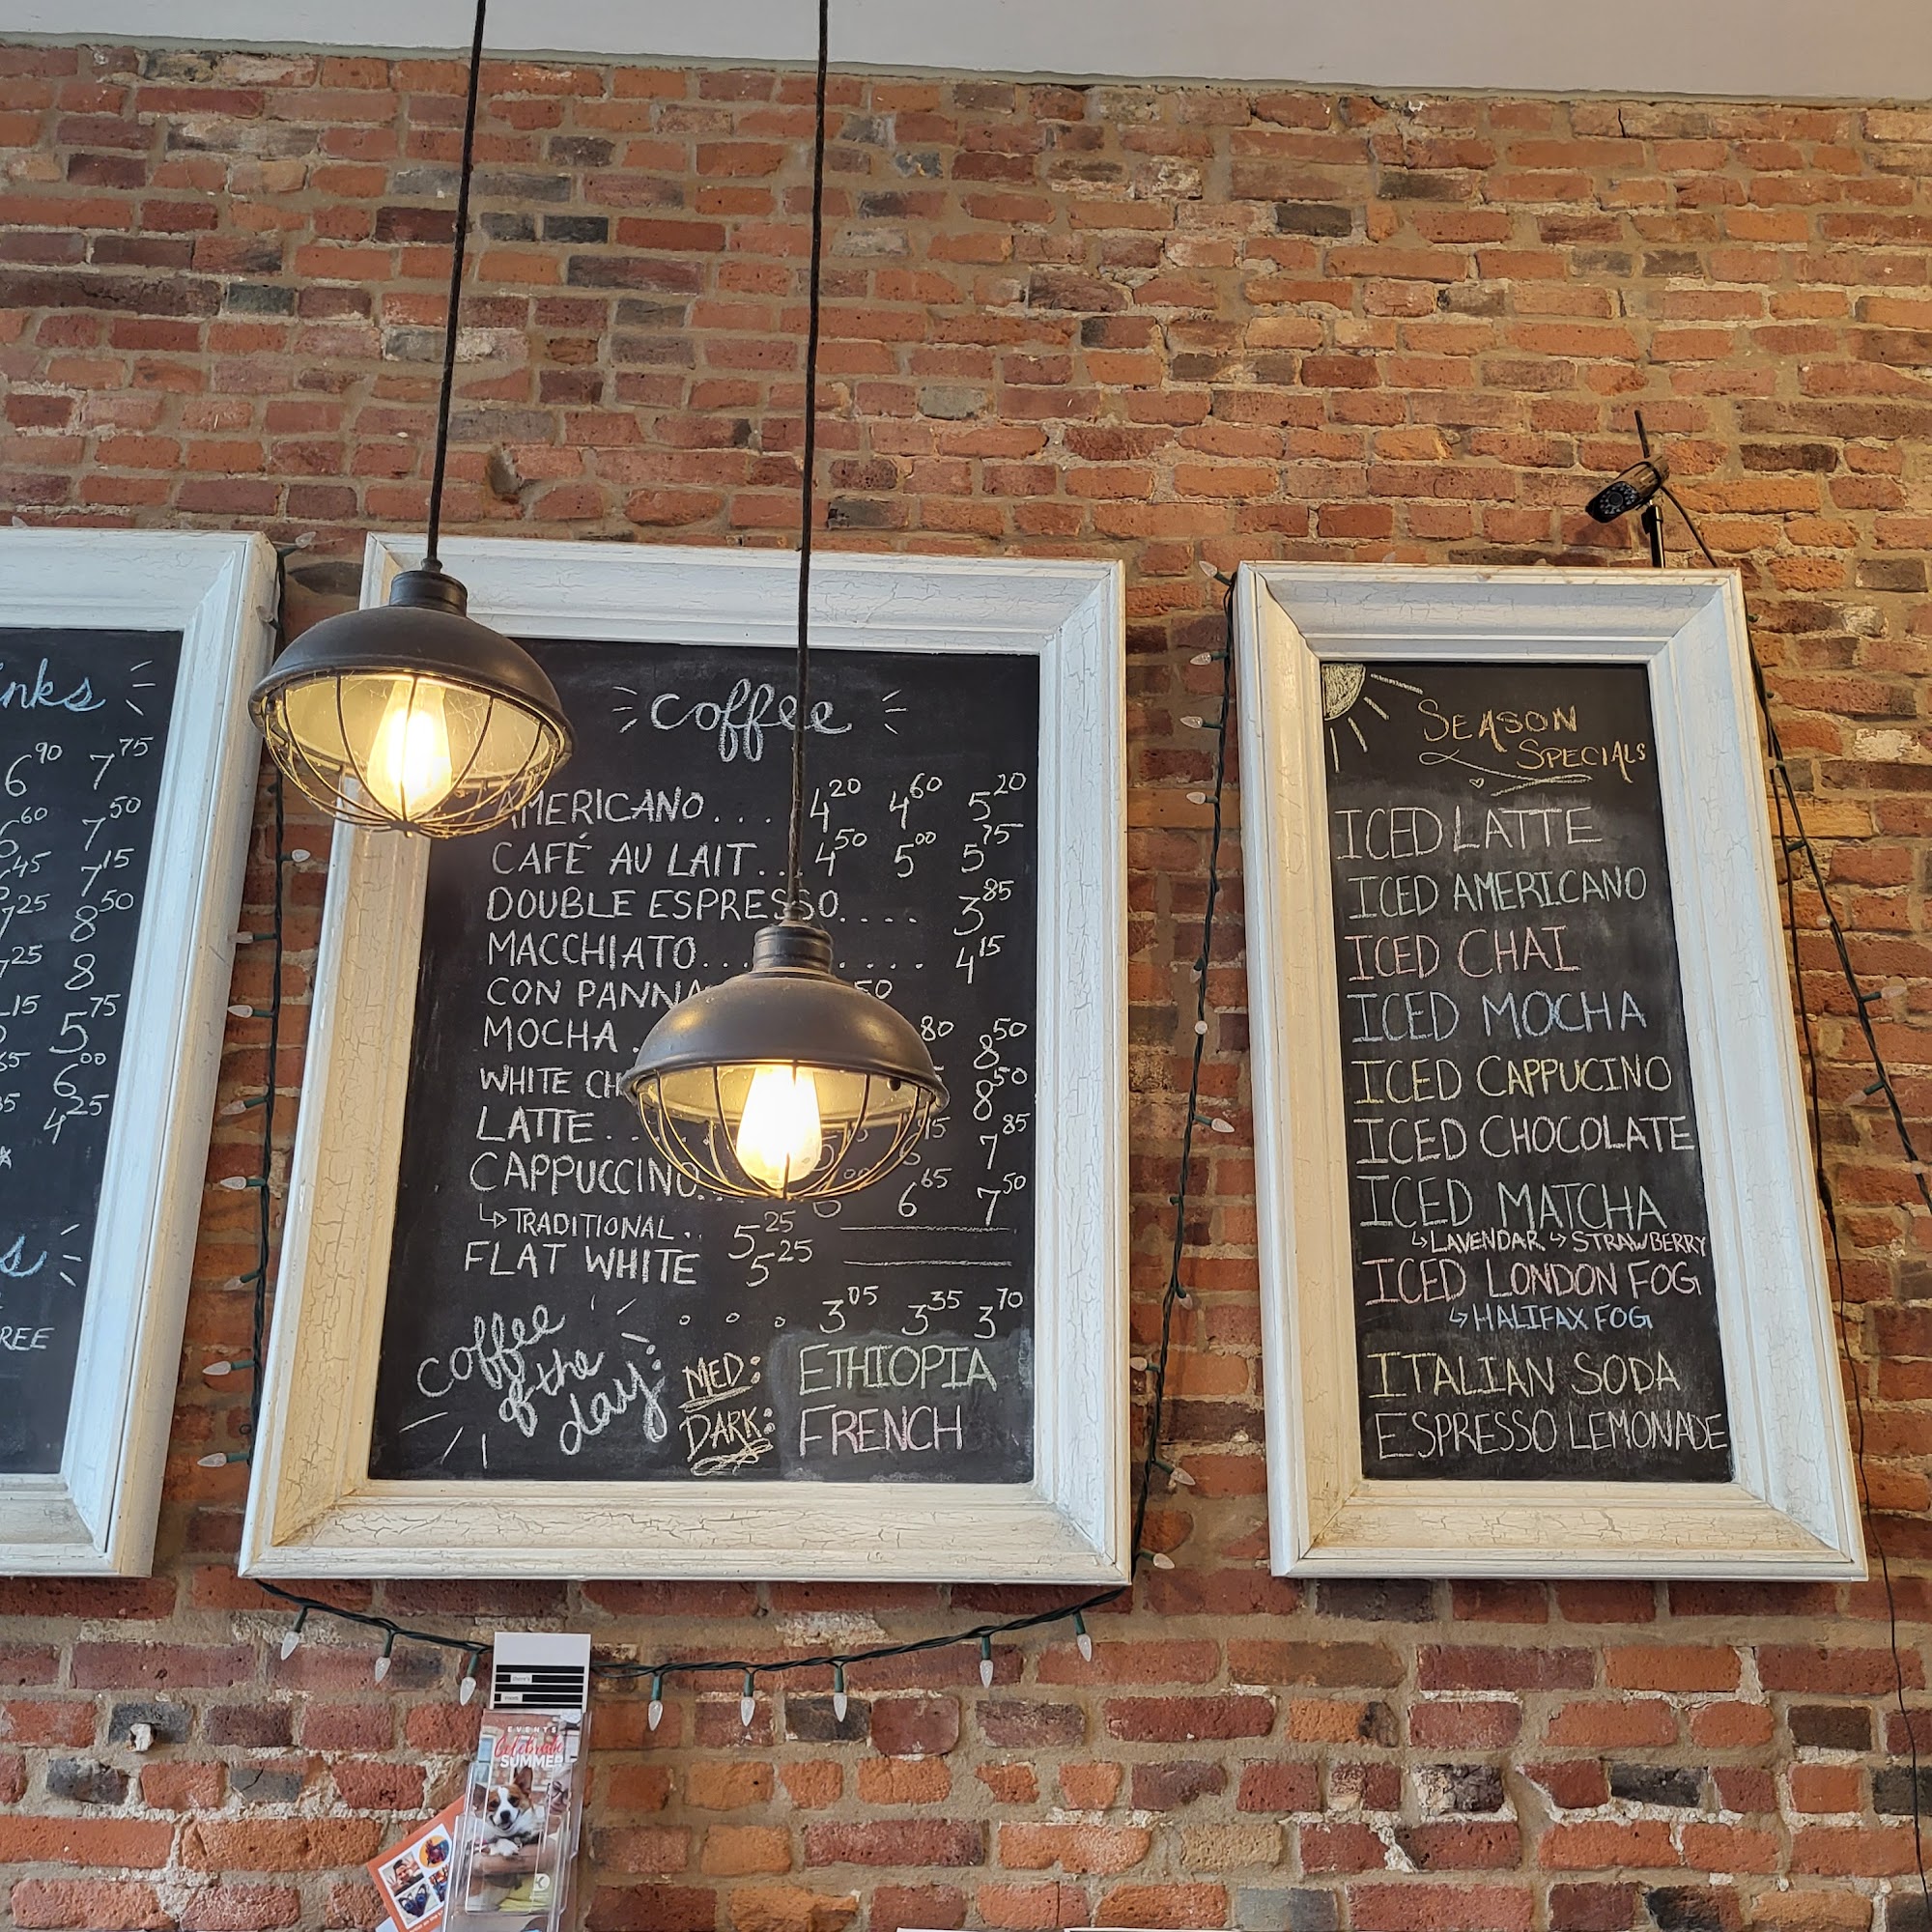 6⁹⁰ 7⁷⁵
7⁵⁰
7¹⁵
8⁵⁰
8
5⁷⁵
6⁰⁰
4²⁵
coffee
AMERICANO... 4²⁰ 4⁶⁰ 5²⁰
CAFÉ AU LAIT... 4⁵⁰ 5⁰⁰ 5⁷⁵
DOUBLE ESPRESSO.... 3⁸⁵
MACCHIATO....... 4¹⁵
CON PANNA
MOCHA . 8⁵⁰
WHITE 8⁵⁰
LATTE.. 7⁸⁵
CAPPUCCINO.. 6⁶⁵ 7⁵⁰
↳ TRADITIONAL.. 5²⁵
FLAT WHITE 5²⁵
coffee of the day: ... 3⁰⁵ 3³⁵ 3⁷⁰
MED: ETHIOPIA
DARK: FRENCH
SEASON
SPECIALS
ICED LATTE
ICED AMERICANO
ICED CHAI
ICED MOCHA
ICED CAPPUCINO
ICED CHOCOLATE
ICED MATCHA
↳ LAVENDAR ↳ STRAWBERRY
ICED LONDON FOG
↳ HALIFAX FOG
ITALIAN SODA
ESPRESSO LEMONADE
EVENTS
Celebrate
SUMMER